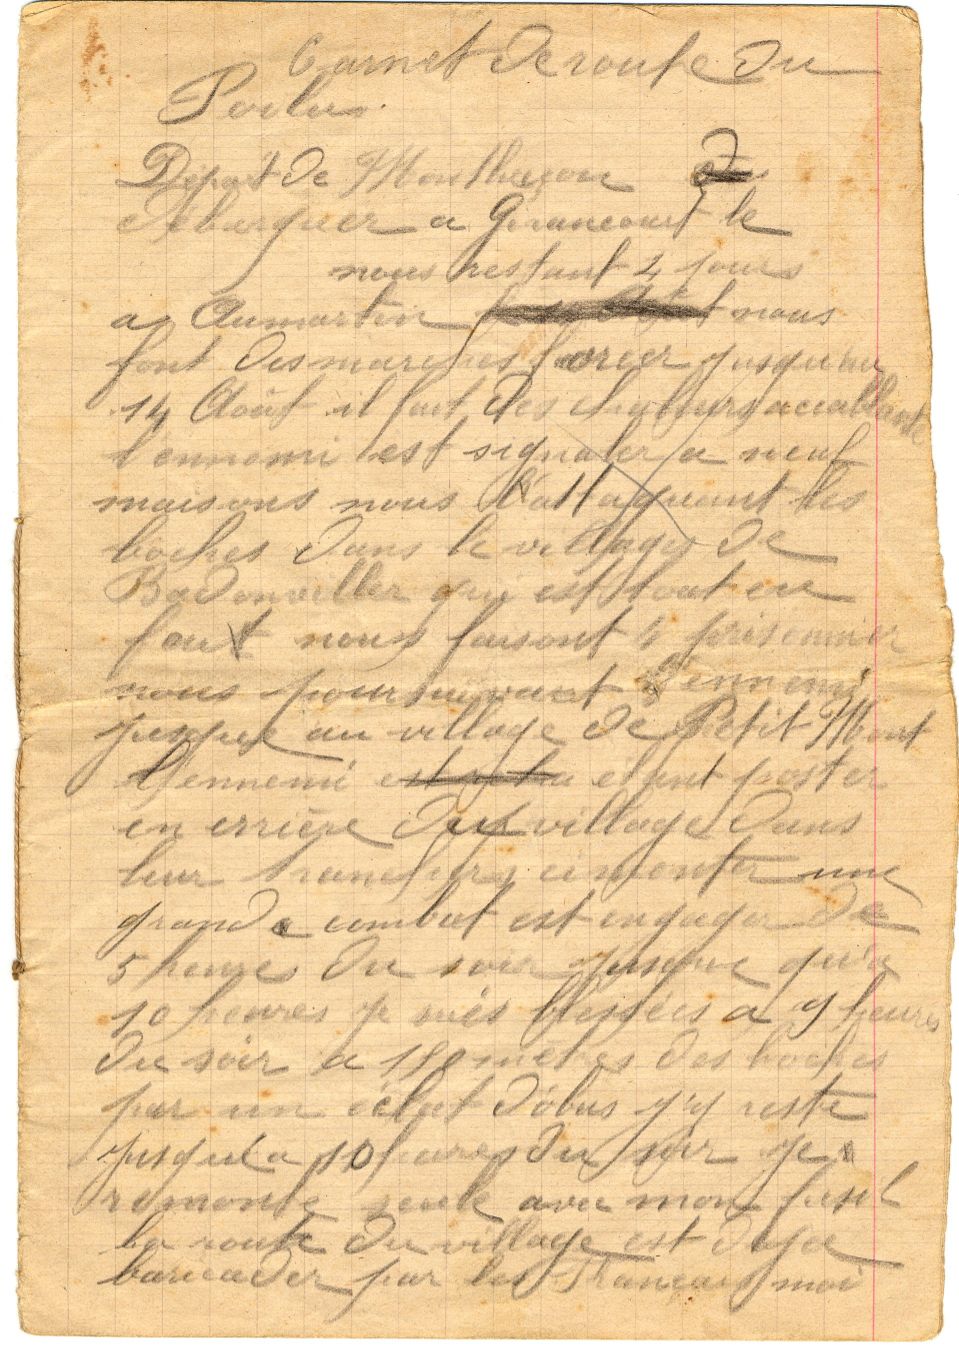 Carnet de route du
Poilu.
Départ de Montluçon
débarquer a Girancourt le
nous restant 4 jours
a Aumartin nous
font des marches forcer jusqu'au
14 Août il fait des chaleurs accablante
l'ennemi est signaler a neuf
maisons nous l'attaquant les
boches dans le village de
Badonviller qui est tout en
feu nous faisont 4 prisonnier
nous poursuivant l'ennemi
jusque au village de Petit Mont
l'ennemi étant poster
en errière du village dans
leur tranchery cimenter une
grande combat est engager de
5 heures du soir jusque qu'a
10 heures je suis blessées a 9 heures
du soir a 150 mètres des boches
par un éclat d'obus j'y reste
jusqu'a 10 heures du soir je
remonte seule avec mon fusil
la route du village est deja
baricader par les Français moi